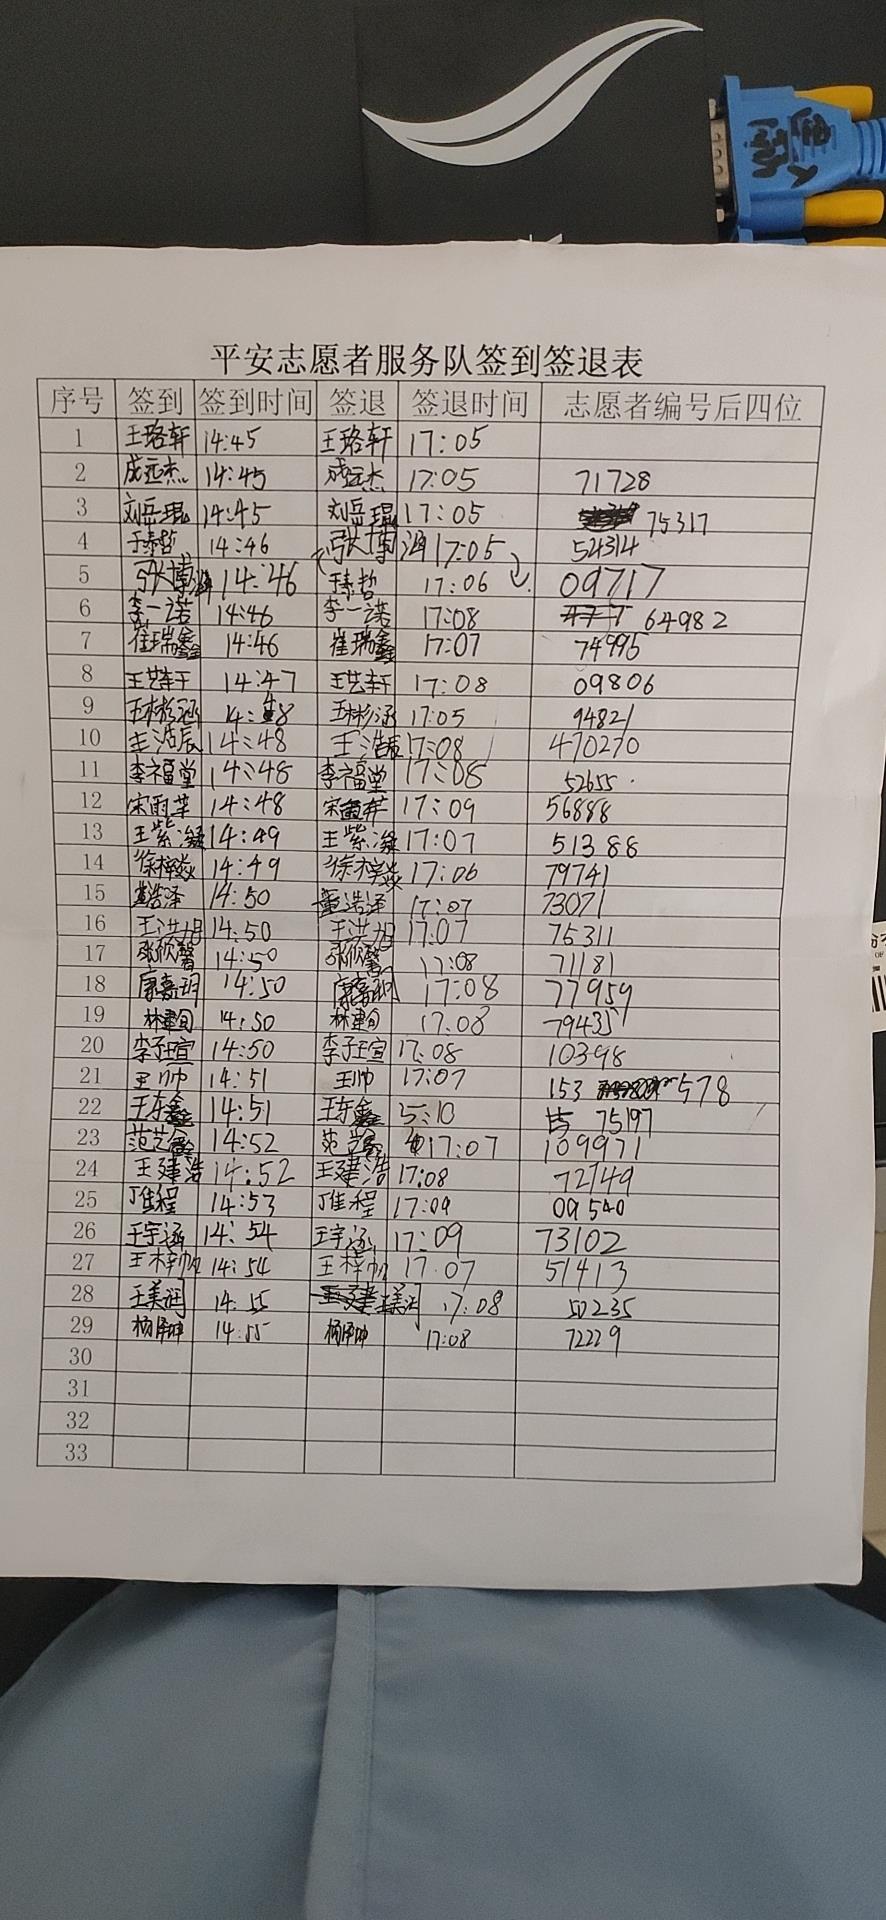 平安志愿者服务队签到签退表
序号 签到 签到时间 签退 签退时间 志愿者编号后四位
1 王珞轩 14:45 王珞轩 17:05
2 成远杰 14:45 成远杰 17:05 71728
3 刘岳琨 14:45 刘岳琨 17:05 75317
4 于泰哲 14:46 张博涵 17:05 54314
5 张博涵 14:46 于泰哲 17:06 09717
6 李一诺 14:46 李一诺 17:08 64982
7 崔瑞鑫 14:46 崔瑞鑫 17:07 74995
8 王艺轩 14:47 王艺轩 17:08 09806
9 王彬涵 14:48 王彬涵 17:05 94821
10 王浩辰 14:48 王浩辰 17:08 470270
11 李福堂 14:48 李福堂 17:08 52655
12 宋雨苹 14:48 宋雨苹 17:09 56888
13 王紫凝 14:49 王紫凝 17:07 51388
14 徐梓焱 14:49 徐梓焱 17:06 79741
15 董浩泽 14:50 董浩泽 17:07 73071
16 王洪旭 14:50 王洪旭 17:07 75311
17 张欣馨 14:50 张欣馨 17:08 71181
18 康嘉玥 14:50 康嘉玥 17:08 77959
19 林建旬 14:50 林建旬 17:08 79435
20 李子瑄 14:50 李子瑄 17:08 10398
21 王帅 14:51 王帅 17:07 153 578
22 王东鑫 14:51 王东鑫 5:10 75197
23 范艺 14:52 范艺 17:07 109971
24 王建浩 14:52 王建浩 17:08 72149
25 丁佳程 14:53 丁佳程 17:09 09540
26 王宇涵 14:54 王宇涵 17:09 73102
27 王梓帆 14:54 王梓帆 17:07 51413
28 王美润 14:55 王美润 17:08 50235
29 杨泽坤 14:55 杨泽坤 17:08 72229
30
31
32
33